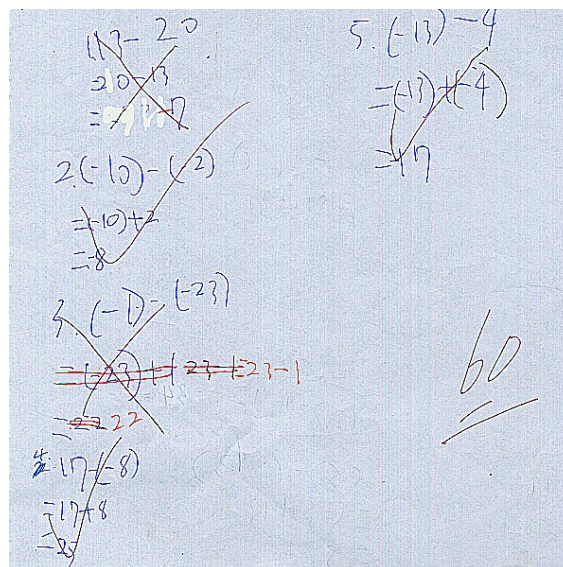 1.13-20
=20-13
=-7
2.(-10)-(-2)
=(-10)+2
=-8
3.(-1)-(-23)
=(-23)+1 23-1=23-1
=-22 22
4.17-(-8)
=17+8
=25
5.(-13)-4
=(-13)+(-4)
=-17
60